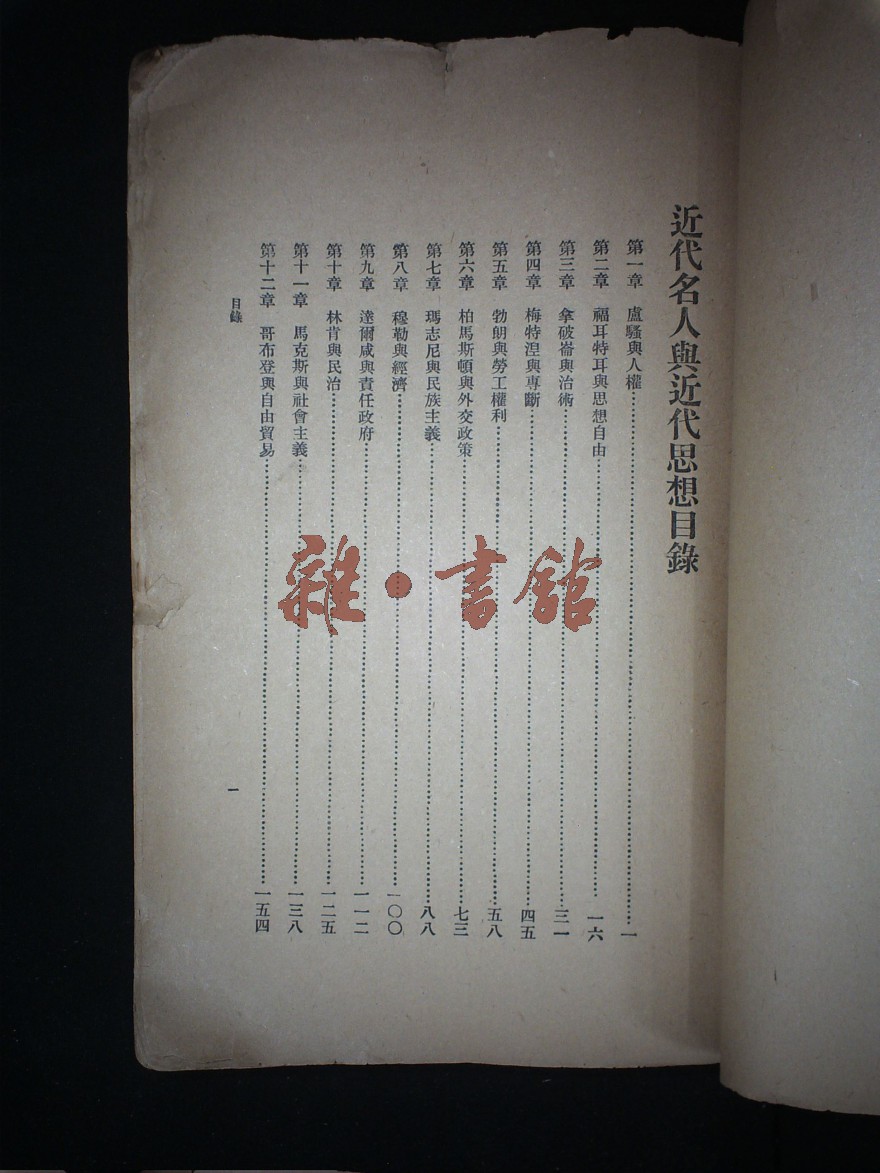 近代名人與近代思想目錄
第一章　盧騷與人權…………一
第二章　福耳特耳與思想自由…………一六
第三章　拿破崙與治術…………三一
第四章　梅特涅與專斷…………四五
第五章　勃朗與勞工權利…………五八
第六章　柏馬斯頓與外交政策…………七三
第七章　瑪志尼與民族主義…………八八
第八章　穆勒與經濟…………一〇〇
第九章　達爾咸與責任政府…………一一二
第十章　林肯與民治…………一二五
第十一章　馬克斯與社會主義…………一三八
第十二章　哥布登與自由貿易…………一五四
目錄
一
雜·書館